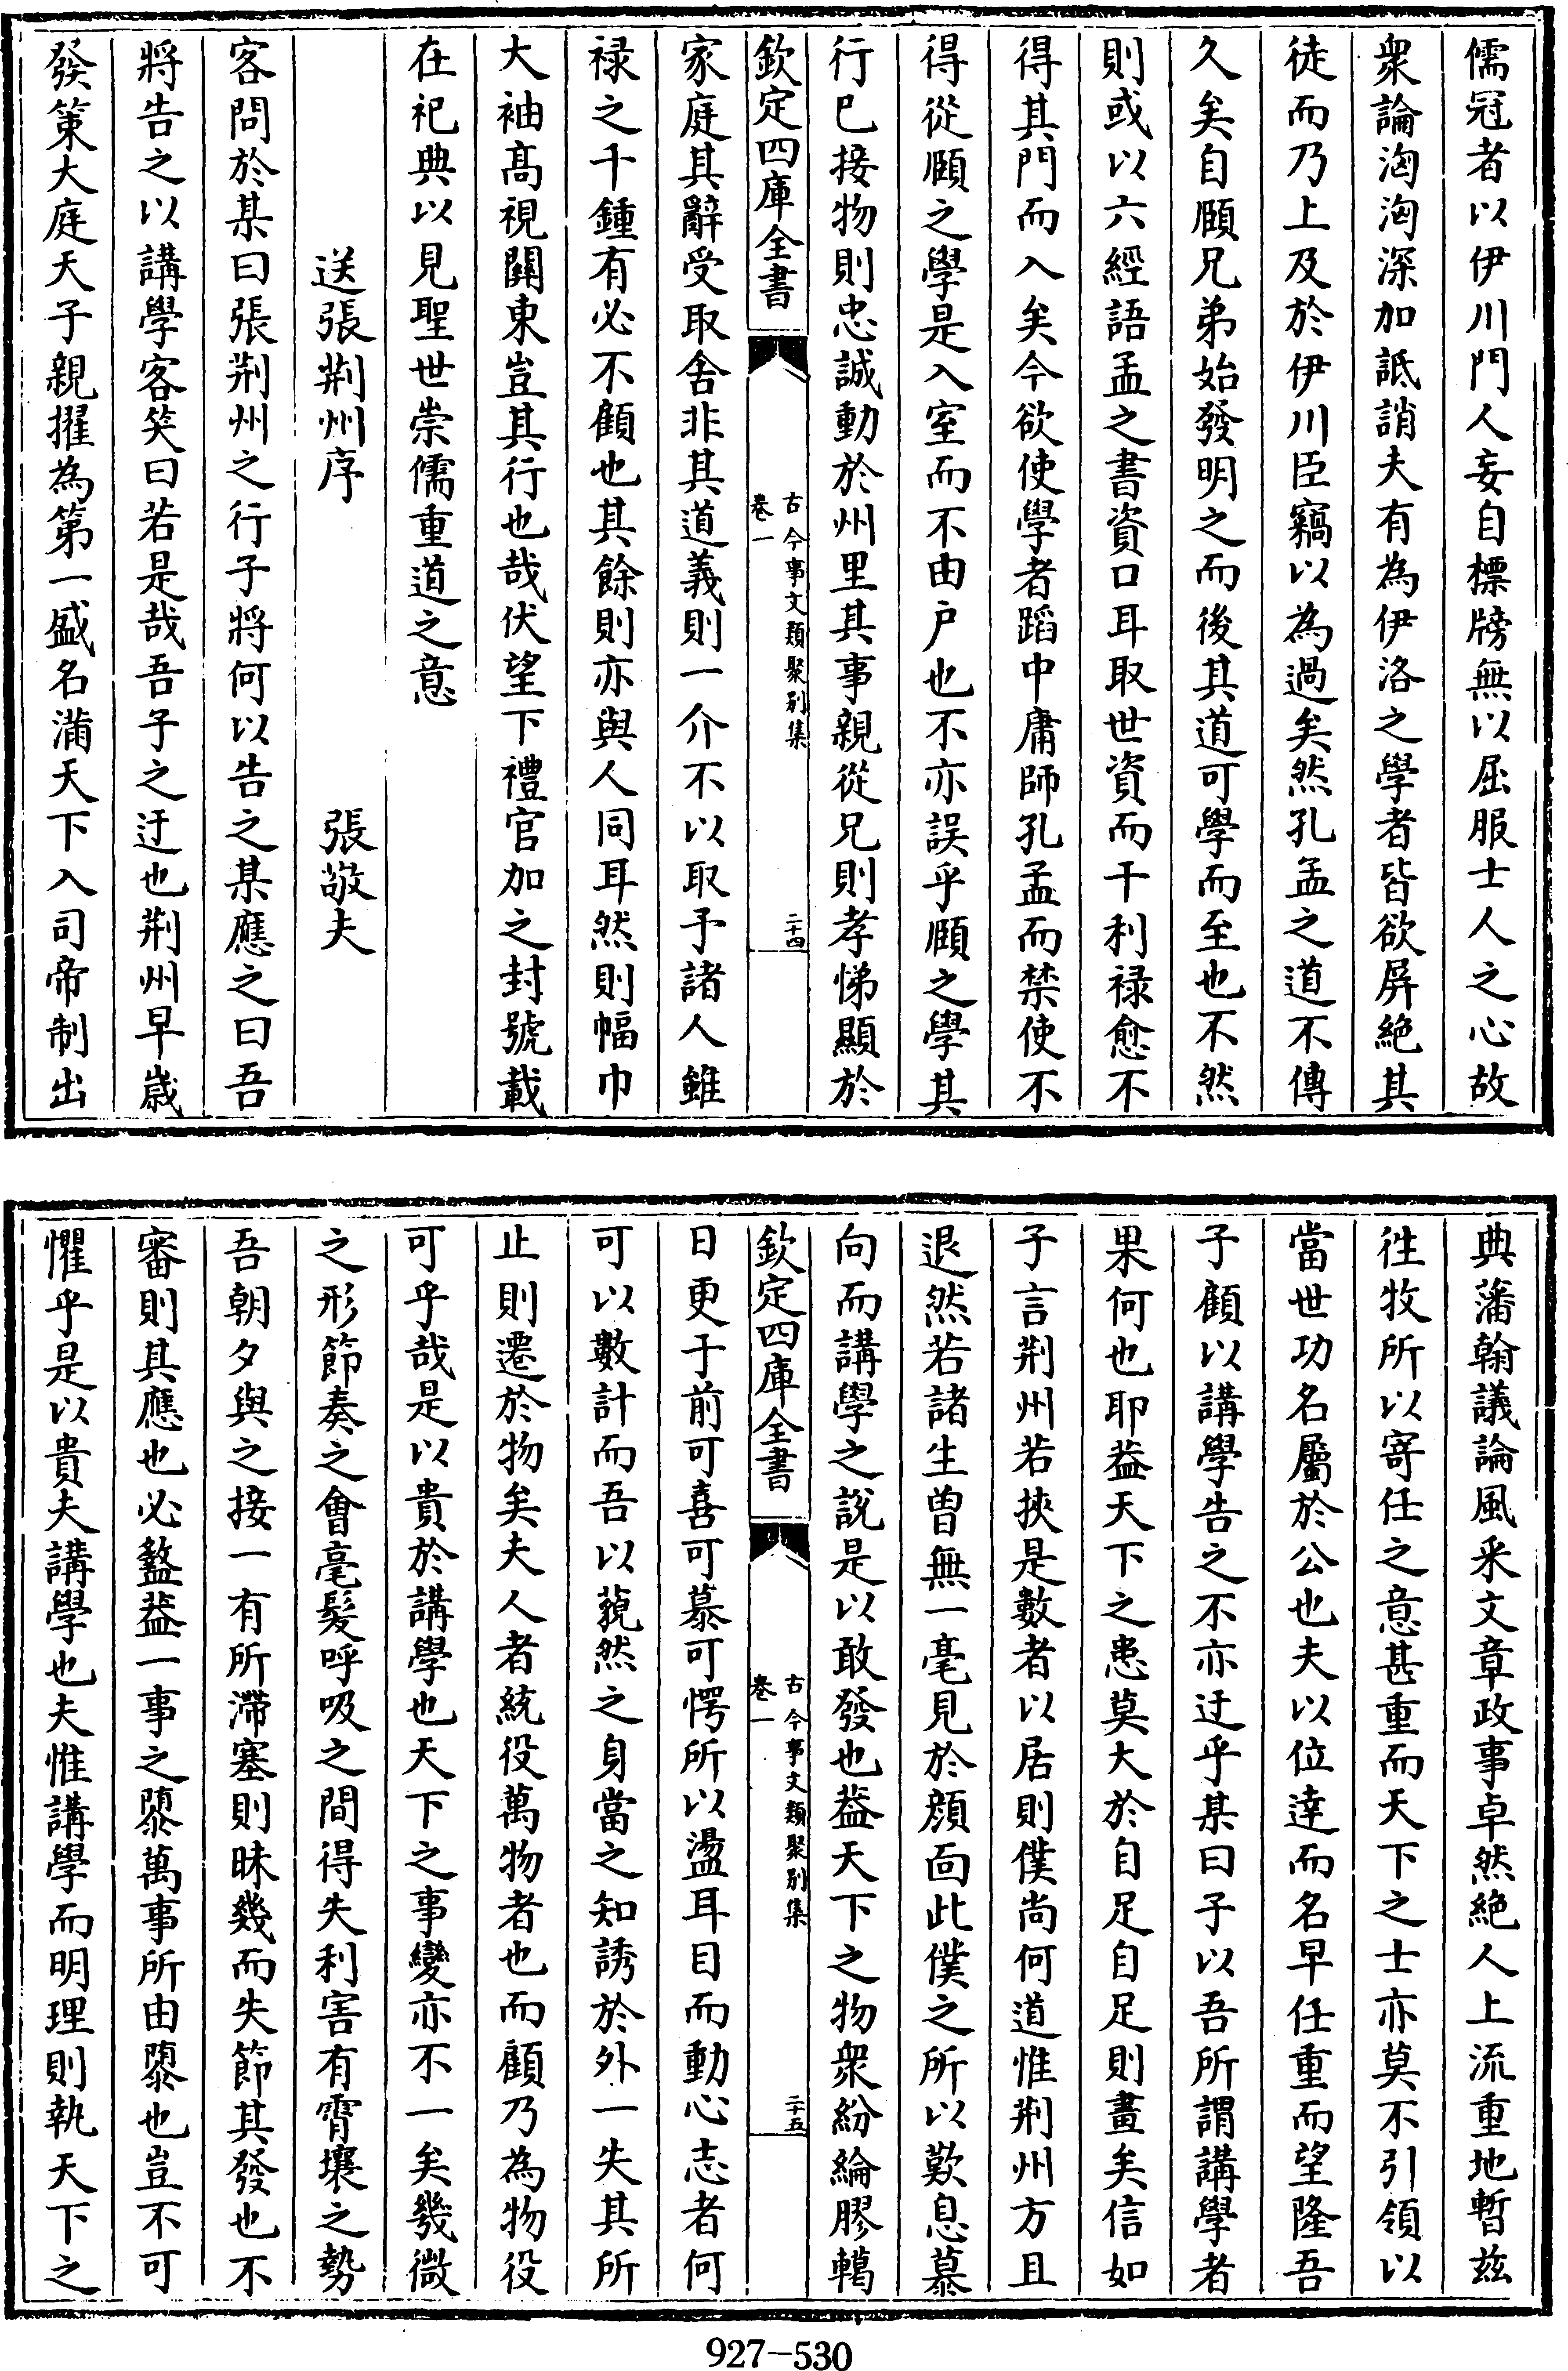 儒冠者以伊川門人妄自標牓無以屈服士人之心故
衆論洶洶深加詆誚夫有為伊洛之學者皆欲屏絶其
徒而乃上及於伊川臣竊以為過矣然孔孟之道不傳
久矣自頤兄弟始發明之而後其道可學而至也不然
則或以六經語孟之書資口耳取世資而干利禄愈不
得其門而入矣今欲使學者蹈中庸師孔孟而禁使不
得從頤之學是入室而不由户也不亦誤乎頤之學其
行已接物則忠誠動於州里其事親從兄則孝悌顯於
欽定四庫全書
古今事文類聚别集
卷一
二十四
家庭其辭受取舍非其道義則一介不以取予諸人雖
禄之千鍾有必不顧也其餘則亦與人同耳然則幅巾
大袖髙視闊東豈其行也哉伏望下禮官加之封號載
在祀典以見聖世崇儒重道之意
送張荆州序 張敬夫
客問於某曰張荆州之行子將何以告之某應之曰吾
將告之以講學客笑曰若是哉吾子之迂也荆州早歳
發策大庭天子親擢為第一盛名滿天下入司帝制出
典藩翰議論風采文章政事卓然絶人上流重地暫兹
徃牧所以寄任之意甚重而天下之士亦莫不引領以
當世功名屬於公也夫以位逹而名早任重而望隆吾
子顧以講學告之不亦迂乎某曰子以吾所謂講學者
果何也耶葢天下之患莫大於自足自足則畫矣信如
子言荆州若挾是數者以居則僕尚何道惟荆州方且
退然若諸生曾無一毫見於顔靣此僕之所以歎息慕
向而講學之說是以敢發也葢天下之物衆紛綸膠轕
欽定四庫全書
古今事文類聚别集
卷一
二十五
日更于前可喜可慕可愕所以盪耳目而動心志者何
可以數計而吾以藐然之身當之知誘於外一失其所
止則遷於物矣夫人者統役萬物者也而顧乃為物役
可乎哉是以貴於講學也天下之事變亦不一矣幾微
之形節奏之會毫髮呼吸之間得失利害有霄壤之勢
吾朝夕與之接一有所滯塞則昧幾而失節其發也不
審則其應也必盭葢一事之隳萬事所由隳也豈不可
懼乎是以貴夫講學也夫惟講學而明理則執天下之
927-530